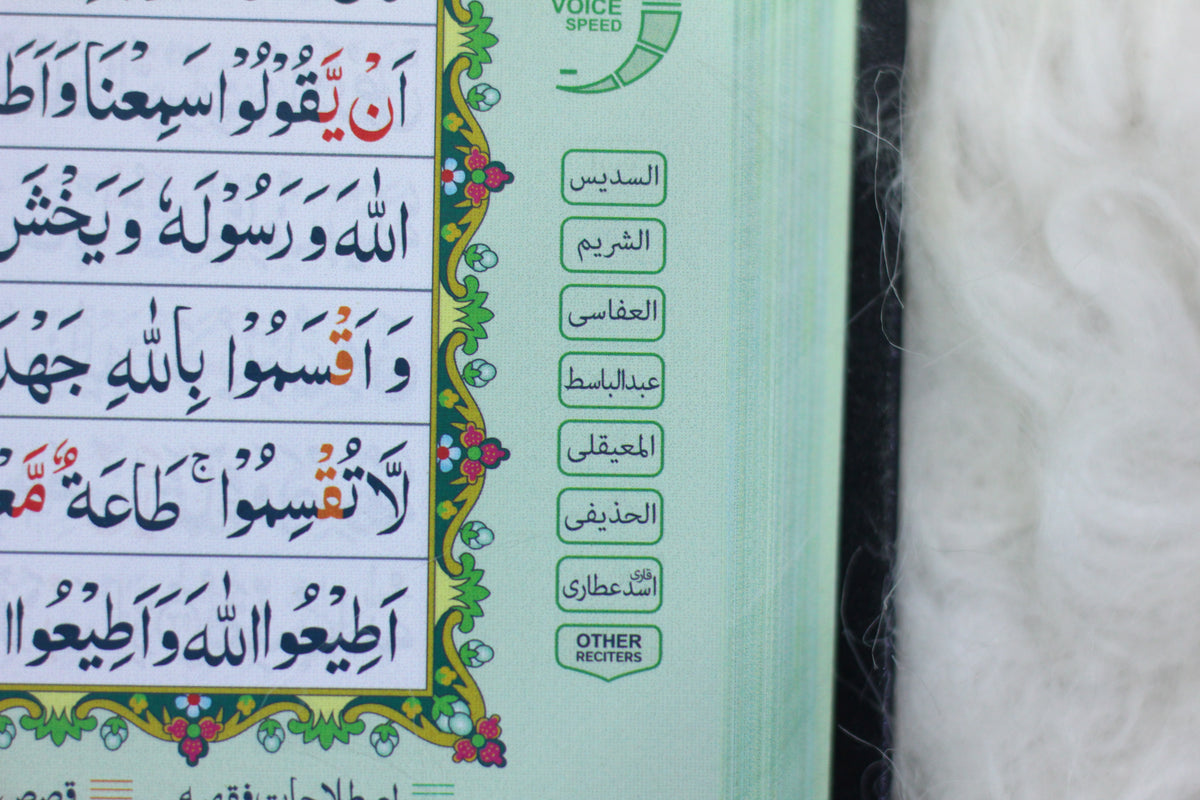 اَنْ يَّقُوْلُوْا سَمِعْنَا وَاَطَ
اللّٰهَ وَ رَسُوْلَهٗ وَ يَخْشَ
وَ اَقْسَمُوْا بِاللّٰهِ جَهْدَ
لَّا تُقْسِمُوْا ۚ طَاعَةٌ مَّعْ
اَطِيْعُوا اللّٰهَ وَ اَطِيْعُوا ا
VOICE
SPEED
السديس
الشريم
العفاسى
عبدالباسط
المعيقلى
الحذيفى
قارى اسد عطارى
OTHER
RECITERS
اصطلاحات فقهيه
قصص